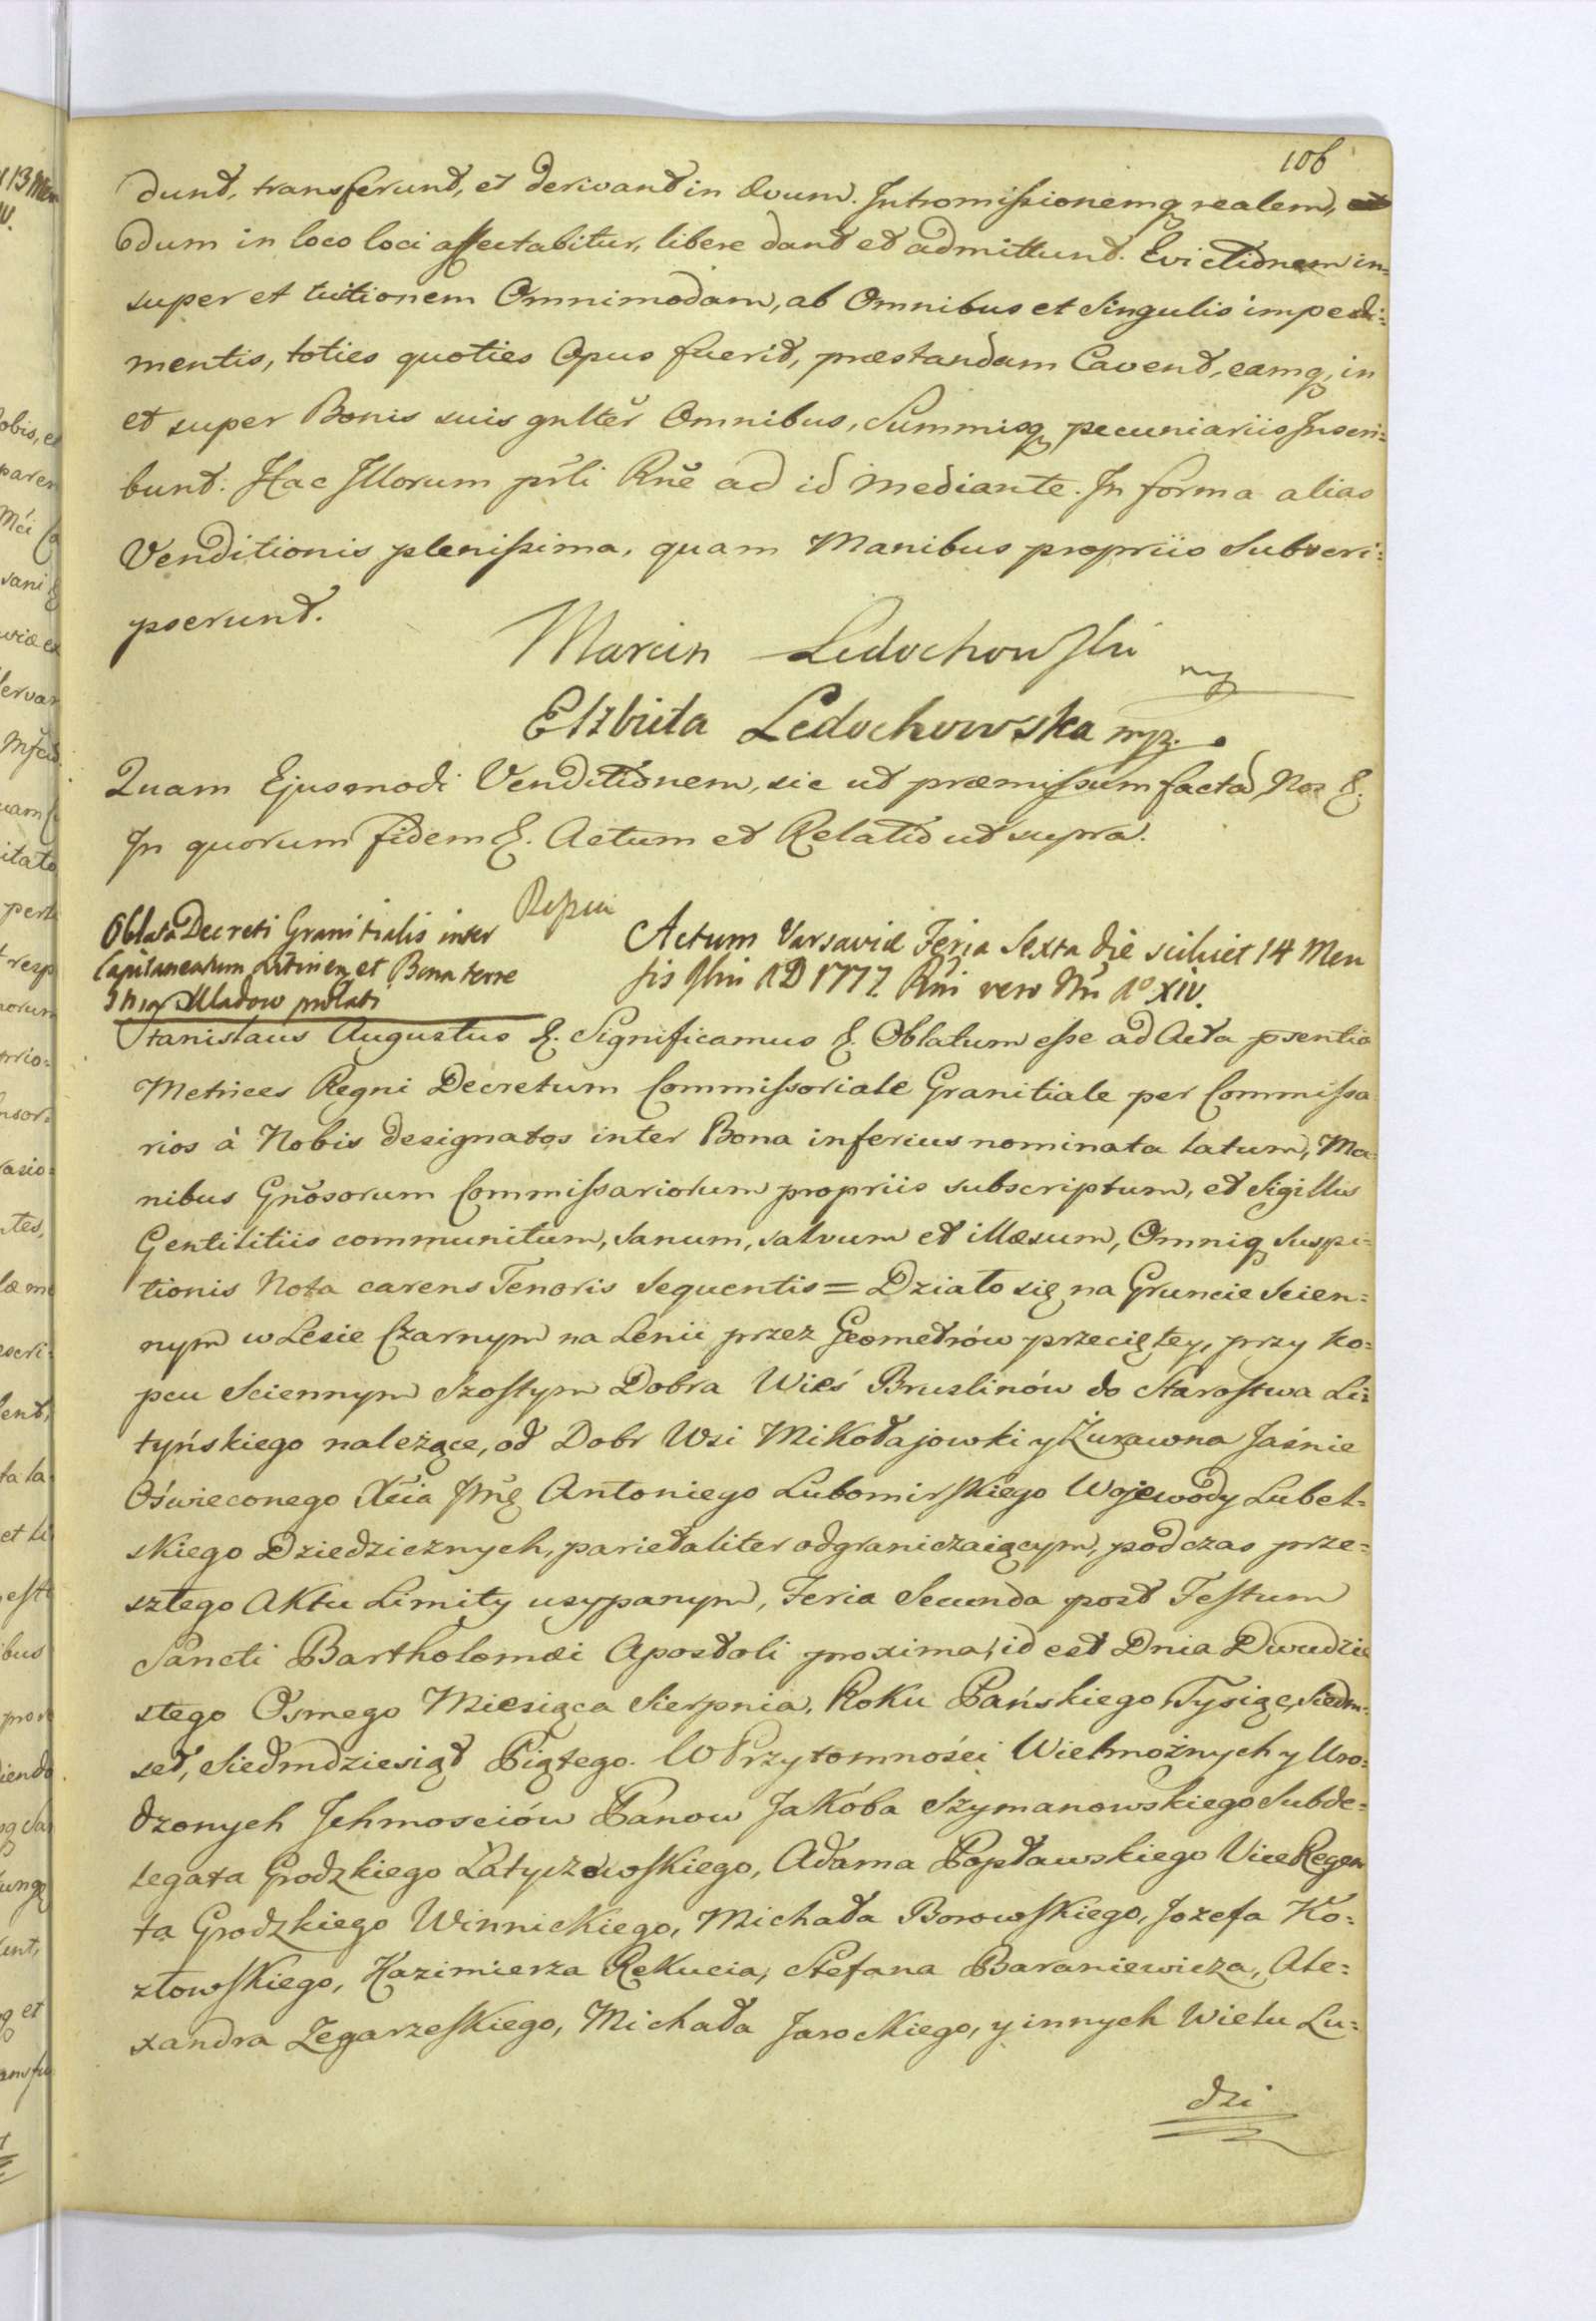 106
dunt, transferunt, et derivant in ævum. Intromissionemq̃ realem,
dum in loco loci affectabitur, libere dant et admittunt. Evictionem in=
super et tuitionem Omnimodam, ab Omnibus et Singulis impedi=
mentis, toties quoties Opus fuerit, præstandam Cavent, eamq̃, in
et super Bonis suis gnltĕr Omnibus, Summisq̃ pecuniariis Inscri=
bunt. Hac Illorum pñli Rnĕ ad id mediante. In forma alias
Venditionis plenissima, quam Manibus propriis Subscri=
pserunt.
Marcin Ledochowski mp
Elzbieta Ledochowska mp.
Quam Ejusmodi Venditionem, sic ut præmissum factã, Nos &.
In quorum fidem &. Actum et Relatio ut supra.
Oblata Decreti Granitialis inter
Capitaneatum Litinien, et Bona terre
prolati
Actum Varsaviæ Feria Sexta die scilicet 14 Men
sis 9bris AD 1777. Rñi vero Nñ Aº XIV.
Stanislaus Augustus &. Significamus &. Oblatum esse ad Acta psentia
Metrices Regni Decretum Commissoriale Granitiale per Commissa
rios à Nobis designatos inter Bona inferius nominata latum, Ma=
nibus Gñosorum Commissariorum propriis subscriptum, et Sigillis
Gentilitiis communitum, Sanum, salvum et illæsum, Omniq̃ Suspi=
tionis Nota carens Tenoris Sequentis = Działo się na Gruncie Scien=
nym w Lesie Czarnym na Lenii przez Geometrów przeciętey, przy ko=
pcu Sciennym Szostym Dobra Wieś Bruslinów do Starostwa Li=
tyńskiego należące, od Dobr Wsi Mikołajowki y Żurawna Jaśnie
Oświeconego Xcia Jmę Antoniego Lubomirskiego Wojewody Lubel=
skiego Dziedzicznych, parietaliter odgraniczaiącym, podczas prze=
szłego Aktu Limity usypanym, Feria Secunda post Festum
Sancti Bartholomæi Apostoli proxima, id est Dnia Dwudzie
stego Osmego Miesiąca Sierpnia, Roku Pańskiego Tysiąc, Siedm=
set, Siedmdziesiąt Piątego. W Przytomności Wielmożnych y Uro=
dzonych Jchmosciów Panow Jakóba Szymanowskiego Subde=
legata Grodzkiego Latyczowskiego, Adama Popławskiego ViceRegen
ta Grodzkiego Winnickiego, Michała Borowskiego, Jozefa Ko=
złowskiego, Kazimierza Rekucia, Stefana Baraniewicza, Ale=
xandra Zegarzeskiego, Michała Jarockiego, y innych Wielu Lu=
dzi